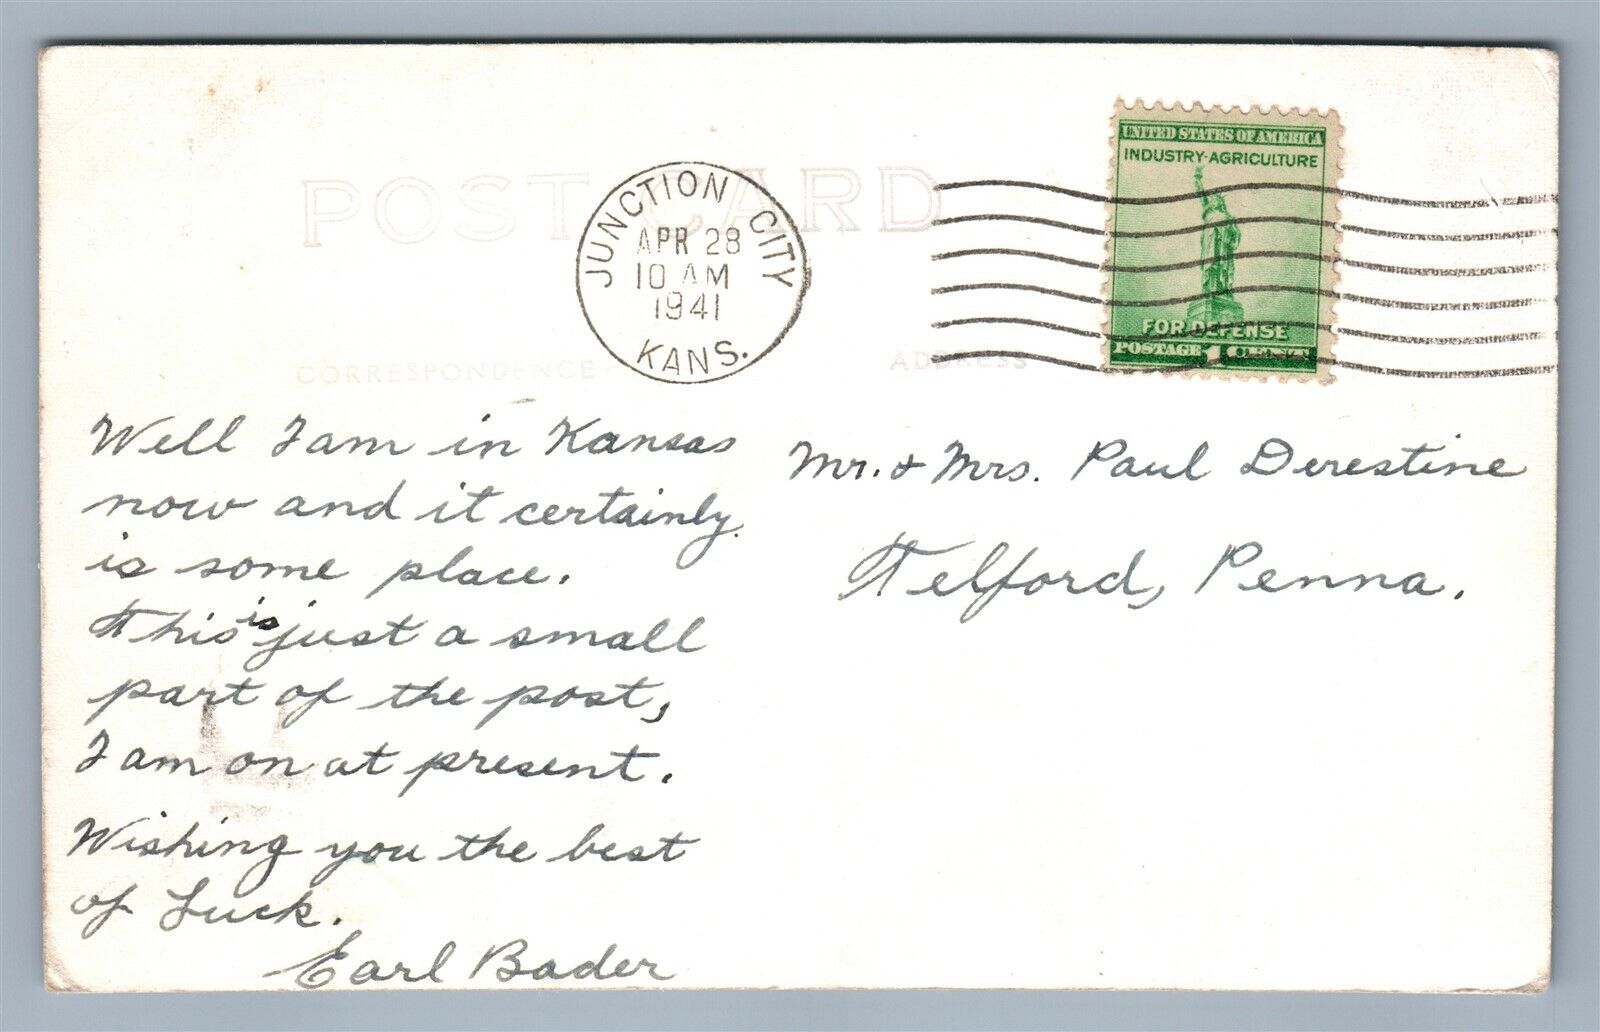 POST CARD
JUNCTION CITY
APR 28
10 AM
1941
KANS.
UNITED STATES OF AMERICA
INDUSTRY-AGRICULTURE
FOR DEFENSE
POSTAGE 1 CENT
CORRESPONDENCE
ADDRESS
Well I am in Kansas
now and it certainly
is some place.
This is just a small
part of the post,
I am on at present.
Wishing you the best
of Luck.
Earl Bader
Mr. & Mrs. Paul Derestine
Telford, Penna.